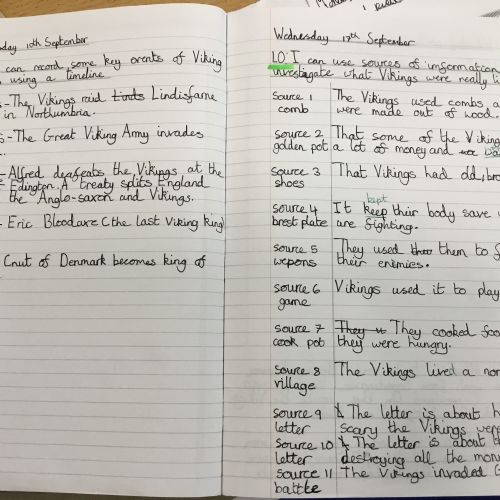 day 10th September
can record some key events of Viking
using a timeline
s - The Vikings raid Lindisfarne
in Northumbria.
s - The Great Viking Army invades
- Alfred deafeats the Vikings at the
Edington. A treaty splits England
the Anglo-saxon and Vikings.
- Eric Bloodaxe (the last Viking king)
Cnut of Denmark becomes king of
Wednesday 17th September
LO: I can use sources of information
investigate what Vikings were really li
source 1 The Vikings used combs, a
comb were made out of wood.
source 2 That some of the Viking
golden pot a lot of money and
source 3 That Vikings had old, bro
shoes
kept
source 4 It keep their body save
brest plate are fighting.
source 5 They used them to f
wepons their enemies.
source 6 Vikings used it to play
game
source 7 They cooked foo
cook pot they were hungry.
source 8 The Vikings lived a nor
village
source 9 The letter is about h
letter scary the Vikings wer
source 10 The letter is about t
letter destroying all the mon
source 11 The Vikings invaded t
battle